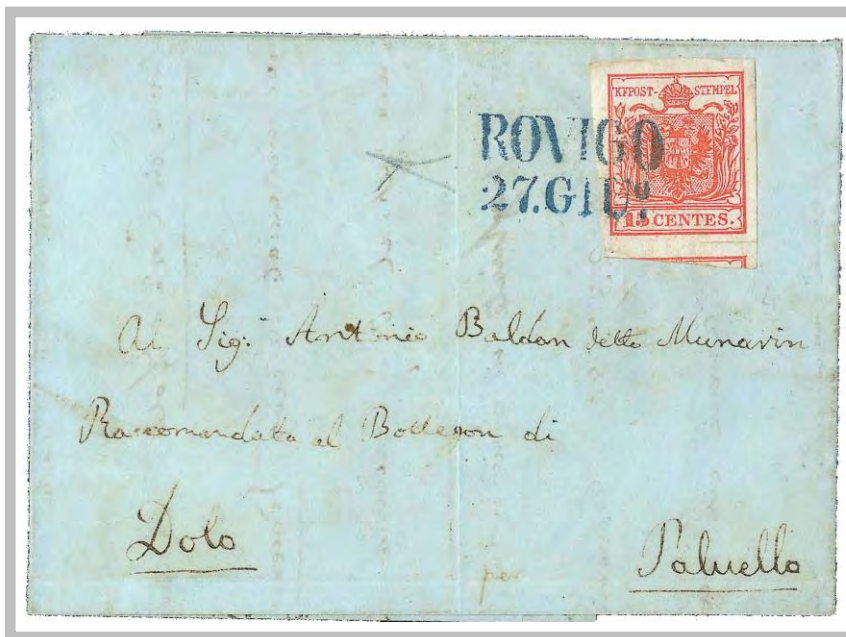 KFPOST- STEMPEL
ROVIGO
27.GIU.º
15 CENTES.
Al Sig.r Antonio Baldan detto Munarin
Raccomandata al Bottegon di
Dolo
per
Paluello